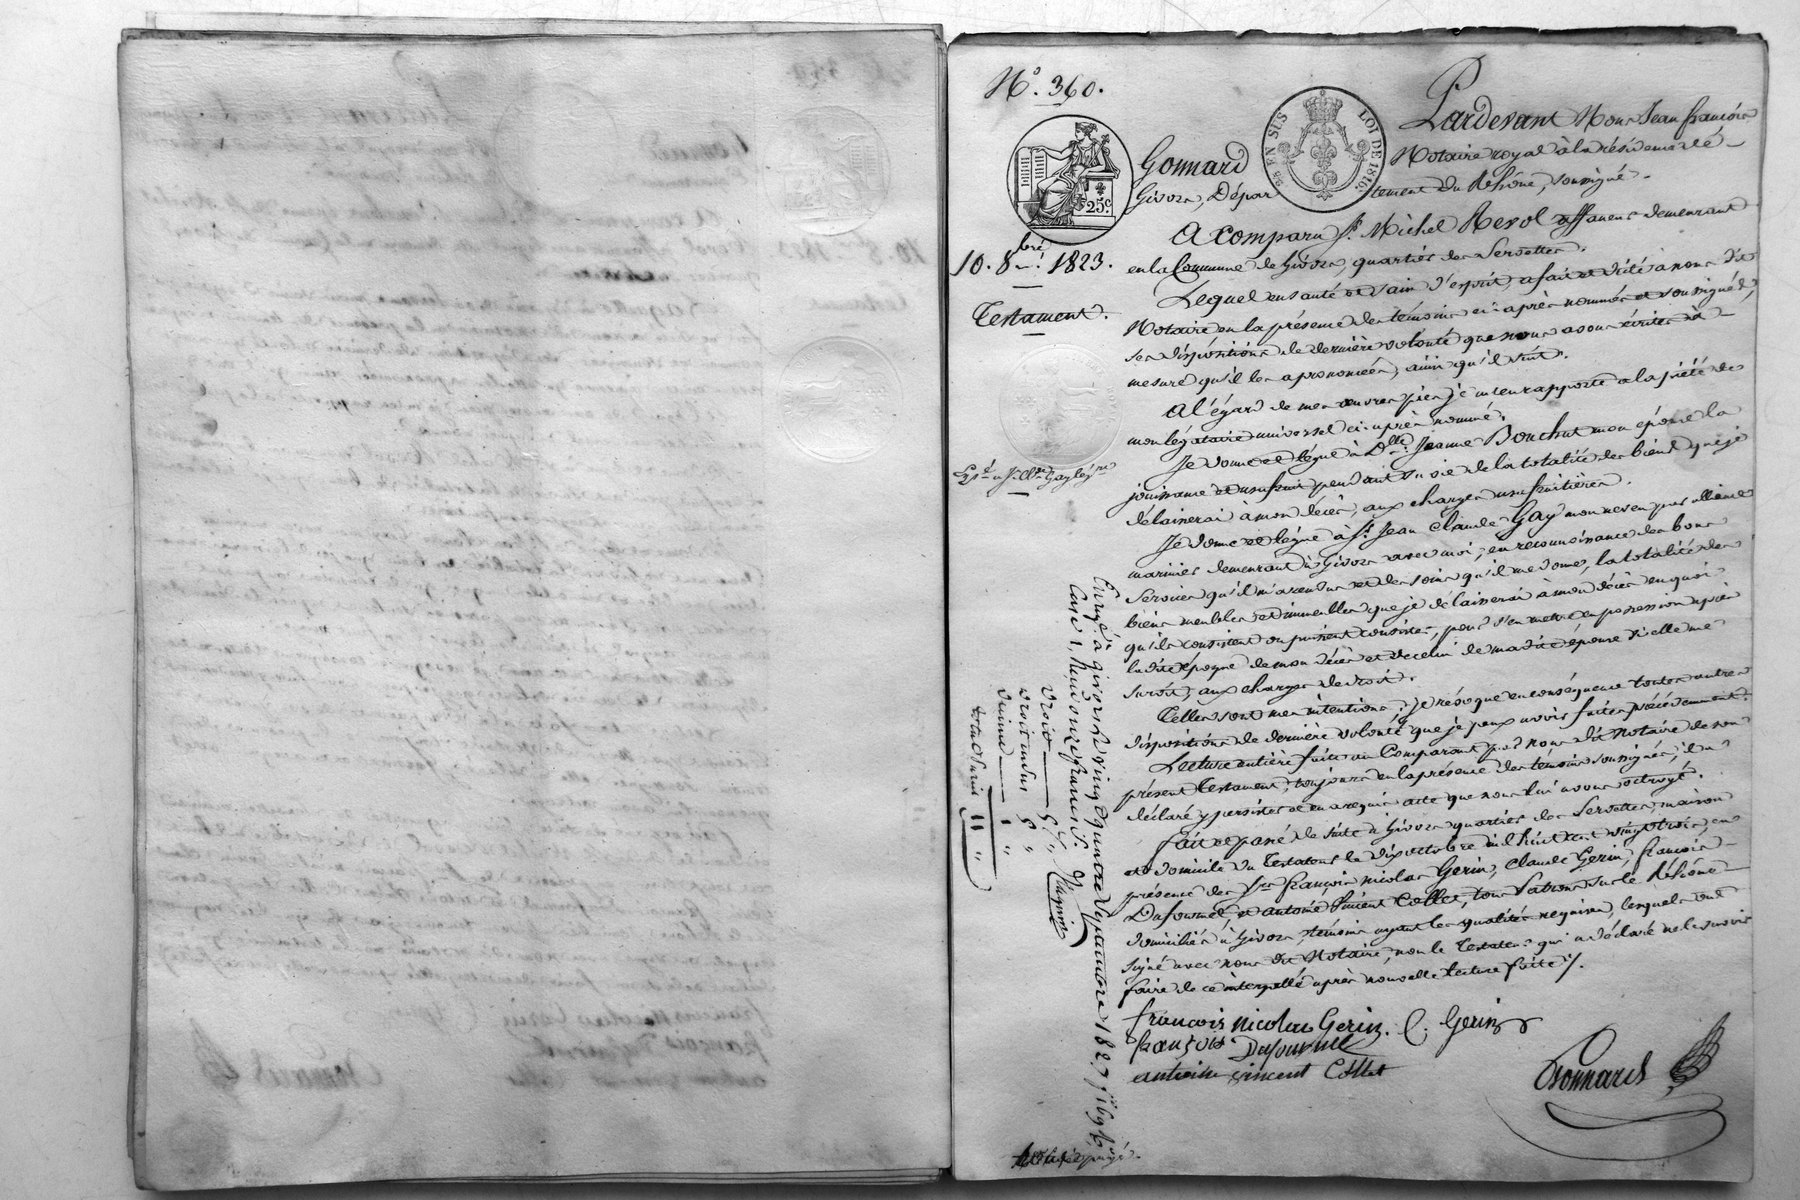 N.º 360.
Pardevant Nous Jean françois
Gonnard Notaire royal à la résidence de
Givors, Département du Rhône, soussigné.
EN SUS LOI DE 1816
25c
10. 8bre 1823.
Testament.
A comparu Sr. Michel Revol affaneur demeurant
en la Commune de Givors, quartier des Servettes.
Lequel en santé et sain d'esprit, a fait et dicté à nous dit
Notaire en la présence des témoins ci-après nommés et soussignés,
ses dispositions de dernière volonté que nous avons écrites à
mesure qu'il les a prononcées, ainsi qu'il suit.
A l'égard de mes œuvres pies je m'en rapporte à la piété de
mon légataire universel ci-après nommé.
Je donne et lègue à Dlle. Jeanne Bouchut mon épouse la
jouissance et usufruit pendant sa vie de la totalité des biens que je
délaisserai à mon décès, aux charges usufruitières.
Je donne et lègue à Sr. Jean Claude Gay mon neveu par alliance
marinier demeurant à Givors avec moi, en reconnoissance des bons
services qu'il m'a rendus et des soins qu'il me donne, la totalité des
biens meubles et immeubles que je délaisserai à mon décès en quoi
qu'ils consistent ou puissent consister, pour s'en mettre en possession après
la dite époque de mon décès et de celui de ma dite épouse si elle me
survit, aux charges de droit.
Telles sont mes intentions; je révoque en conséquence toutes autres
dispositions de dernière volonté que je peux avoir faites précédemment.
Lecture entière faite au Comparant par nous dit Notaire de son
présent Testament, toujours en la présence des témoins soussignés, il a
déclaré y persister et en a requis acte que nous lui avons octroyé.
fait et passé de suite à Givors quartier des Servettes maison
et domicile du Testateur le dix octobre mil huit cent vingt trois, en
présence des Srs. françois nicolas Gerin, Claude Gerin, françois
Dufournel, et antoine Vincent Collet, tous Patrons sur le Rhône
domiciliés à Givors, témoins ayant les qualités requises, lesquels ont
signé avec nous dit Notaire, non le Testateur qui a déclaré ne le savoir
faire de ce interpellé après nouvelle lecture faite ./.
françois nicolas Gerin. C. Gerin
françois Dufournel
antoine vincent Collet
Gonnard
Enregé à givors le vingt quatre Septembre 1827
droit 5
droit en sus 5
décime 1
total 11